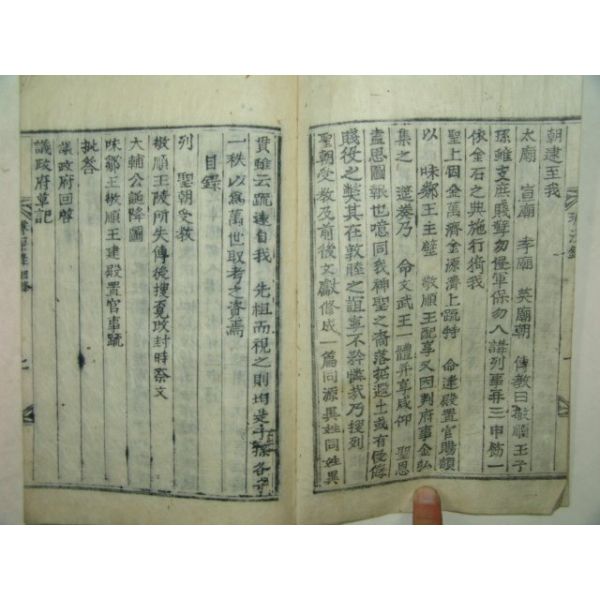 朝逮至我
太廟 宣廟 孝廟 英廟朝 傳敎曰敬順王子
孫雖支庶賤孼勿侵軍保勿入講列事再三申飭一
依金石之典施行猗我
聖上因金萬濟金源濟上疏特 命建殿置官賜額
以 味鄒王主壁 敬順王配享又因判府事金弘
集之 筵奏乃 命文武王一體并享咸仰 聖恩
盡思圖報也噫同我神聖之裔落拓遐土或有侵侮
賤役之獘其在敦睦之誼寧不矜憐哉乃搜列
聖朝受敎及前後文獻修成一篇同源異姓同姓異
貫雖云疏遠自我 先祖而視之則均是子孫各守
一秩以爲萬世取考之資焉
目錄
列 聖朝受敎
敬順王陵所失傳後搜覓改封時祭文
大輔公誕降圖
味鄒王敬順王建殿置官事䟽
批答
議政府回啓
議政府草記